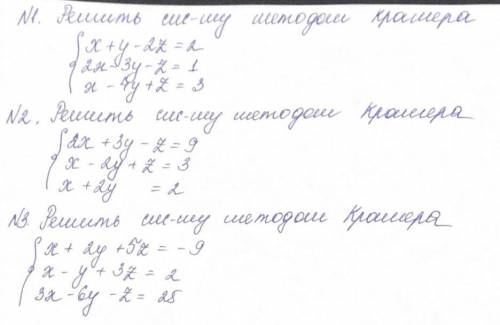 N1. Решить сис-му методом Крамера
x + y - 2z = 2
2x - 3y - z = 1
x - 4y + z = 3
N2. Решить сис-му методом Крамера
2x + 3y - z = 9
x - 2y + z = 3
x + 2y = 2
N3. Решить сис-му методом Крамера
x + 2y + 5z = -9
x - y + 3z = 2
3x - 6y - z = 25